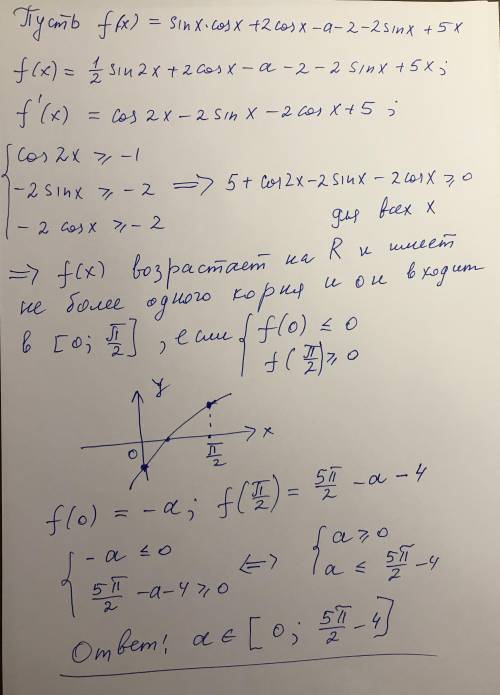 Пусть f(x) = sinx·cosx+2cosx-a-2-2sinx+5x
f(x) = 1/2 sin2x+2cosx-a-2-2sinx+5x;
f'(x) = cos2x-2sinx-2cosx+5;
{ cos2x ≥ -1
-2sinx ≥ -2 => 5+cos2x-2sinx-2cosx ≥ 0
-2cosx ≥ -2 для всех x
=> f(x) возрастает на R и имеет
не более одного корня и он входит
в [0; π/2], если { f(0) ≤ 0
f(π/2) ≥ 0
y
0 π/2 x
f(0) = -a; f(π/2) = 5π/2 -a-4
{ -a ≤ 0 <=> { a ≥ 0
5π/2 -a-4 ≥ 0 a ≤ 5π/2 -4
Ответ! a ∈ [0; 5π/2 -4]